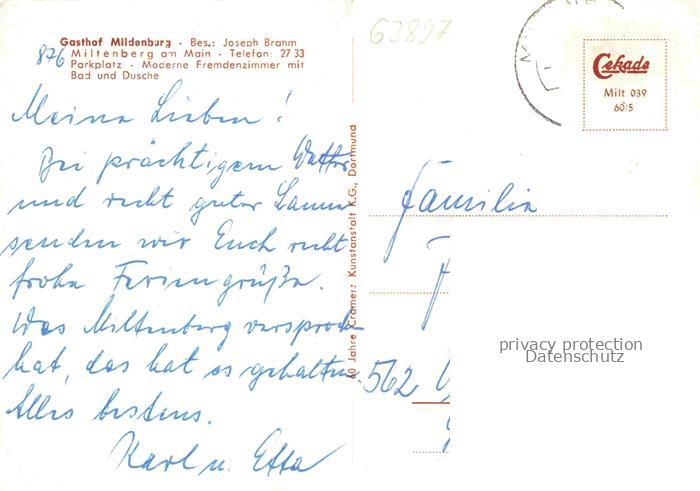 Gasthof Mildenburg · Bes.: Joseph Brahm
Miltenberg am Main · Telefon: 27 33
Parkplatz · Moderne Fremdenzimmer mit
Bad und Dusche
876
Meine Lieben!
Bei prächtigem Wetter
und recht guter Laune
senden wir Euch recht
frohe Feriengrüße.
Was Miltenberg versprochen
hat, das hat es gehalten.
Alles bestens.
Karl u. Etta
60 Jahre Cramers Kunstanstalt K.G., Dortmund
63897
Cekade
Milt 039
60/5
Familie
562
privacy protection
Datenschutz